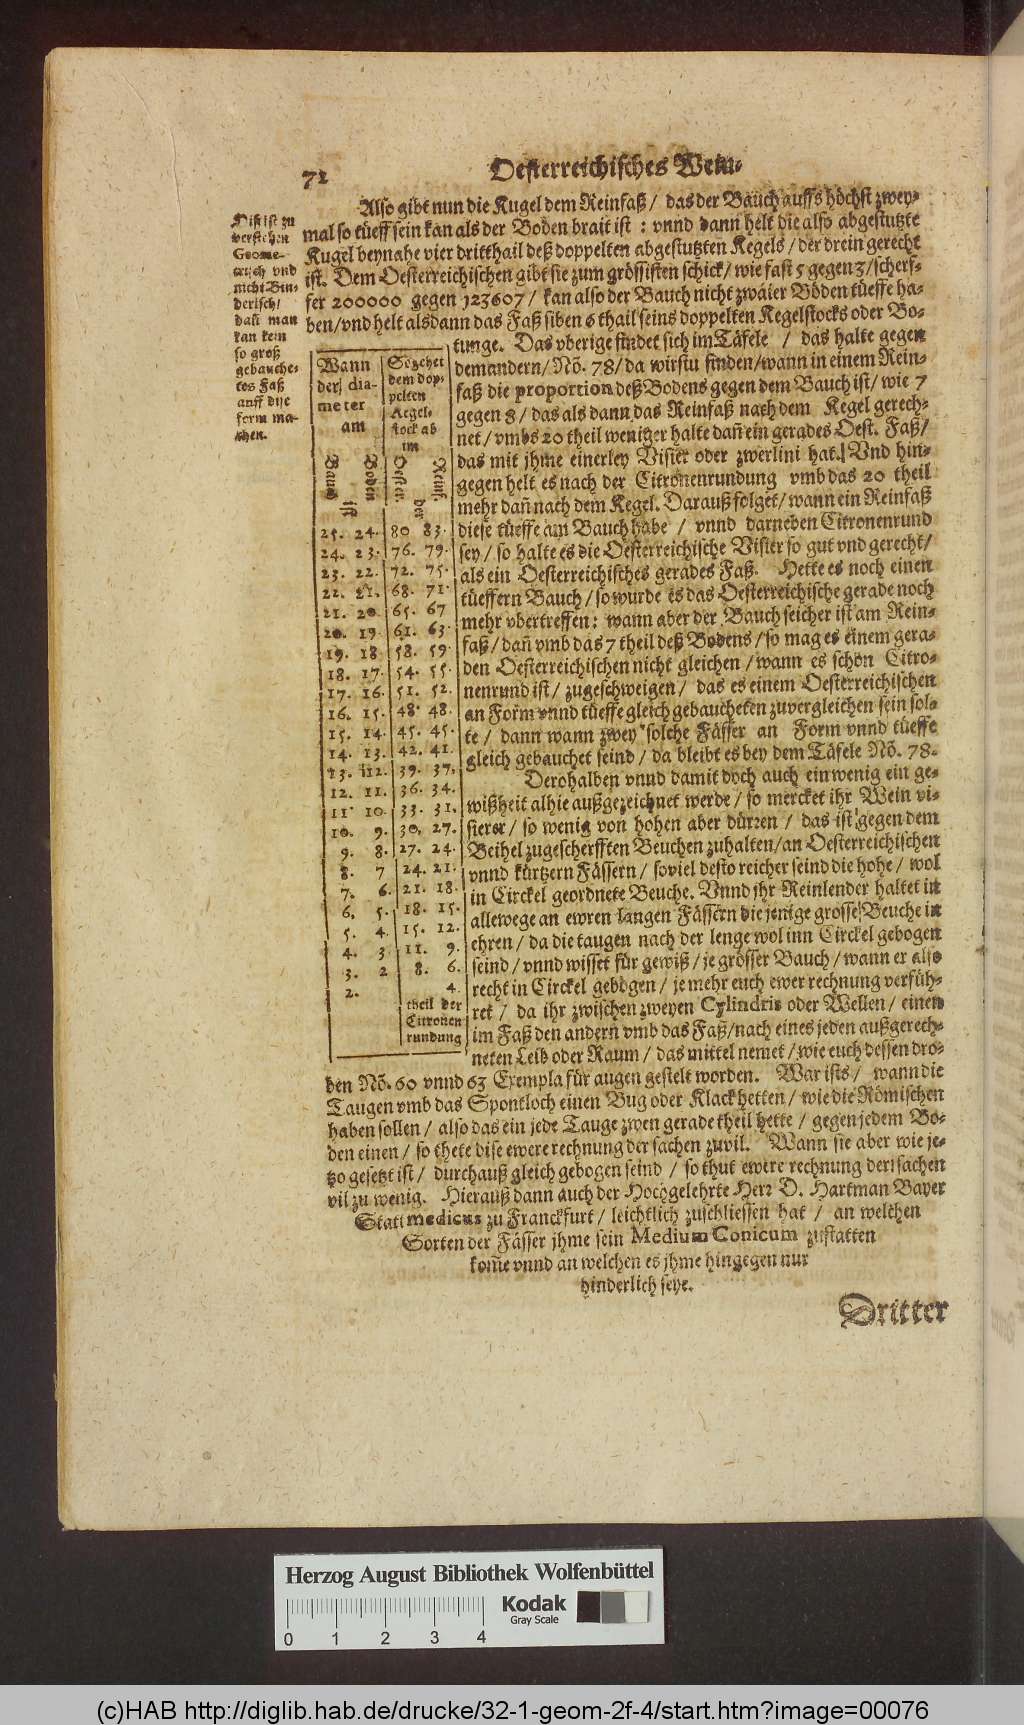 72
Oesterreichisches Wein-
Also gibt nun die Kugel dem Reinfaß / das der Bauch auffs höchst zwey-
mal so tüeff sein kan als der Boden brait ist : vnnd dann helt die also abgestutzte
Kugel beynahe vier dritthail deß doppelten abgestutzten Kegels / der drein gerecht
ist. Dem Oesterreichischen gibt sie zum grössisten schick / wie fast 5 gegen 3 / scherf-
fer 200000 gegen 123607 / kan also der Bauch nicht zwaier Böden tüeffe ha-
ben / vnd helt alsdann das Faß siben 6 thail seins doppelten Kegelstocks oder Bo-
tunge. Das vberige findet sich im Täfele / das halte gegen
demandern / Nō. 78 / da wirstu finden / wann in einem Rein-
faß die proportion deß Bodens gegen dem Bauch ist / wie 7
gegen 8 / das als dann das Reinfaß nach dem Kegel gerech-
net / vmbs 20 theil weniger halte dañ ein gerades Oest. Faß /
das mit jhme einerley Visier oder zwerlini hat. Vnd hin-
gegen helt es nach der Citronenrundung vmb das 20 theil
mehr dañ nach dem Kegel. Darauß folget / wann ein Reinfaß
diese tüeffe am Bauch habe / vnnd darneben Citronenrund
sey / so halte es die Oesterreichische Visier so gut vnd gerecht /
als ein Oesterreichisches gerades Faß. Hette es noch einen
tüeffern Bauch / so wurde es das Oesterreichische gerade noch
mehr vbertreffen : wann aber der Bauch seicher ist am Rein-
faß / dañ vmb das 7 theil deß Bodens / so mag es einem gera-
den Oesterreichischen nicht gleichen / wann es schon Citro-
nenrund ist / zugeschweigen / das es einem Oesterreichischen
an Form vnnd tüeffe gleich gebaucheten zuvergleichen sein sol-
te / dann wann zwey solche Fässer an Form vnnd tüeffe
gleich gebauchet seind / da bleibt es bey dem Täfele Nō. 78.
Derohalben vnnd damit doch auch ein wenig ein ge-
wißheit alhie außgezeichnet werde / so mercket ihr Wein vi-
sierer / so wenig von hohen aber dürren / das ist gegen dem
Beihel zugescherfften Beuchen zuhalten / an Oesterreichischen
vnnd kürtzern Fässern / soviel desto reicher seind die hohe / wol
in Circkel geordnete Beuche. Vnnd jhr Reinlender haltet in
allewege an ewren langen Fässern die jenige grosse Beuche in
ehren / da die taugen nach der lenge wol inn Circkel gebogen
seind / vnnd wisset für gewiß / je grösser Bauch / wann er also
recht in Circkel gebogen / je mehr euch ewer rechnung verfüh-
ret / da ihr zwischen zweyen Cylindris oder Wellen / einen
im Faß den andern vmb das Faß / nach eines jeden außgerech-
neten Leib oder Raum / das mittel nemet / wie euch dessen dro-
ben Nō. 60 vnnd 63 Exempla für augen gestelt worden. War ists / wann die
Taugen vmb das Spontloch einen Bug oder Klack hetten / wie die Römischen
haben sollen / also das ein jede Tauge zwen gerade theil hette / gegen jedem Bo-
den einen / so thete dise ewere rechnung der sachen zuvil. Wann sie aber wie je-
tzo gesetzt ist / durchauß gleich gebogen seind / so thut ewere rechnung der sachen
vil zu wenig. Hierauß dann auch der Hochgelehrte Herr D. Hartman Bayer
Statt medicus zu Franckfurt / leichtlich zuschliessen hat / an welchen
Sorten der Fässer jhme sein Medium Conicum zustatten
kom̃e vnnd an welchen es jhme hingegen nur
hinderlich seye.
Dritter
Diß ist zu
verstehen
Geome-
trisch vnd
nicht Bin-
derisch /
dañ man
kan kein
so groß
gebauche-
tes Faß
auff dise
form ma-
chen.
Wann
der dia-
meter
am
So gehet
dem dop-
pelten
Kegel-
stock ab
im
Bauch Boden Oester. Reinf.
ist der
25. 24. 80 83.
24. 23. 76. 79.
23. 22. 72. 75.
22. 21. 68. 71.
21. 20. 65. 67
20. 19. 61. 63.
19. 18 58. 59.
18. 17. 54. 55.
17. 16. 51. 52.
16. 15. 48. 48.
15. 14. 45. 45.
14. 13. 42. 41.
13. 12. 39. 37.
12. 11. 36. 34.
11 10. 33. 31.
10. 9. 30. 27.
9. 8. 27. 24.
8. 7 24. 21.
7. 6. 21. 18.
6. 5. 18. 15.
5. 4. 15. 12.
4. 3. 11. 9.
3. 2 8. 6.
2. 4.
theil der
Citronen
rundung
Herzog August Bibliothek Wolfenbüttel
Kodak
Gray Scale
0 1 2 3 4
(c)HAB http://diglib.hab.de/drucke/32-1-geom-2f-4/start.htm?image=00076